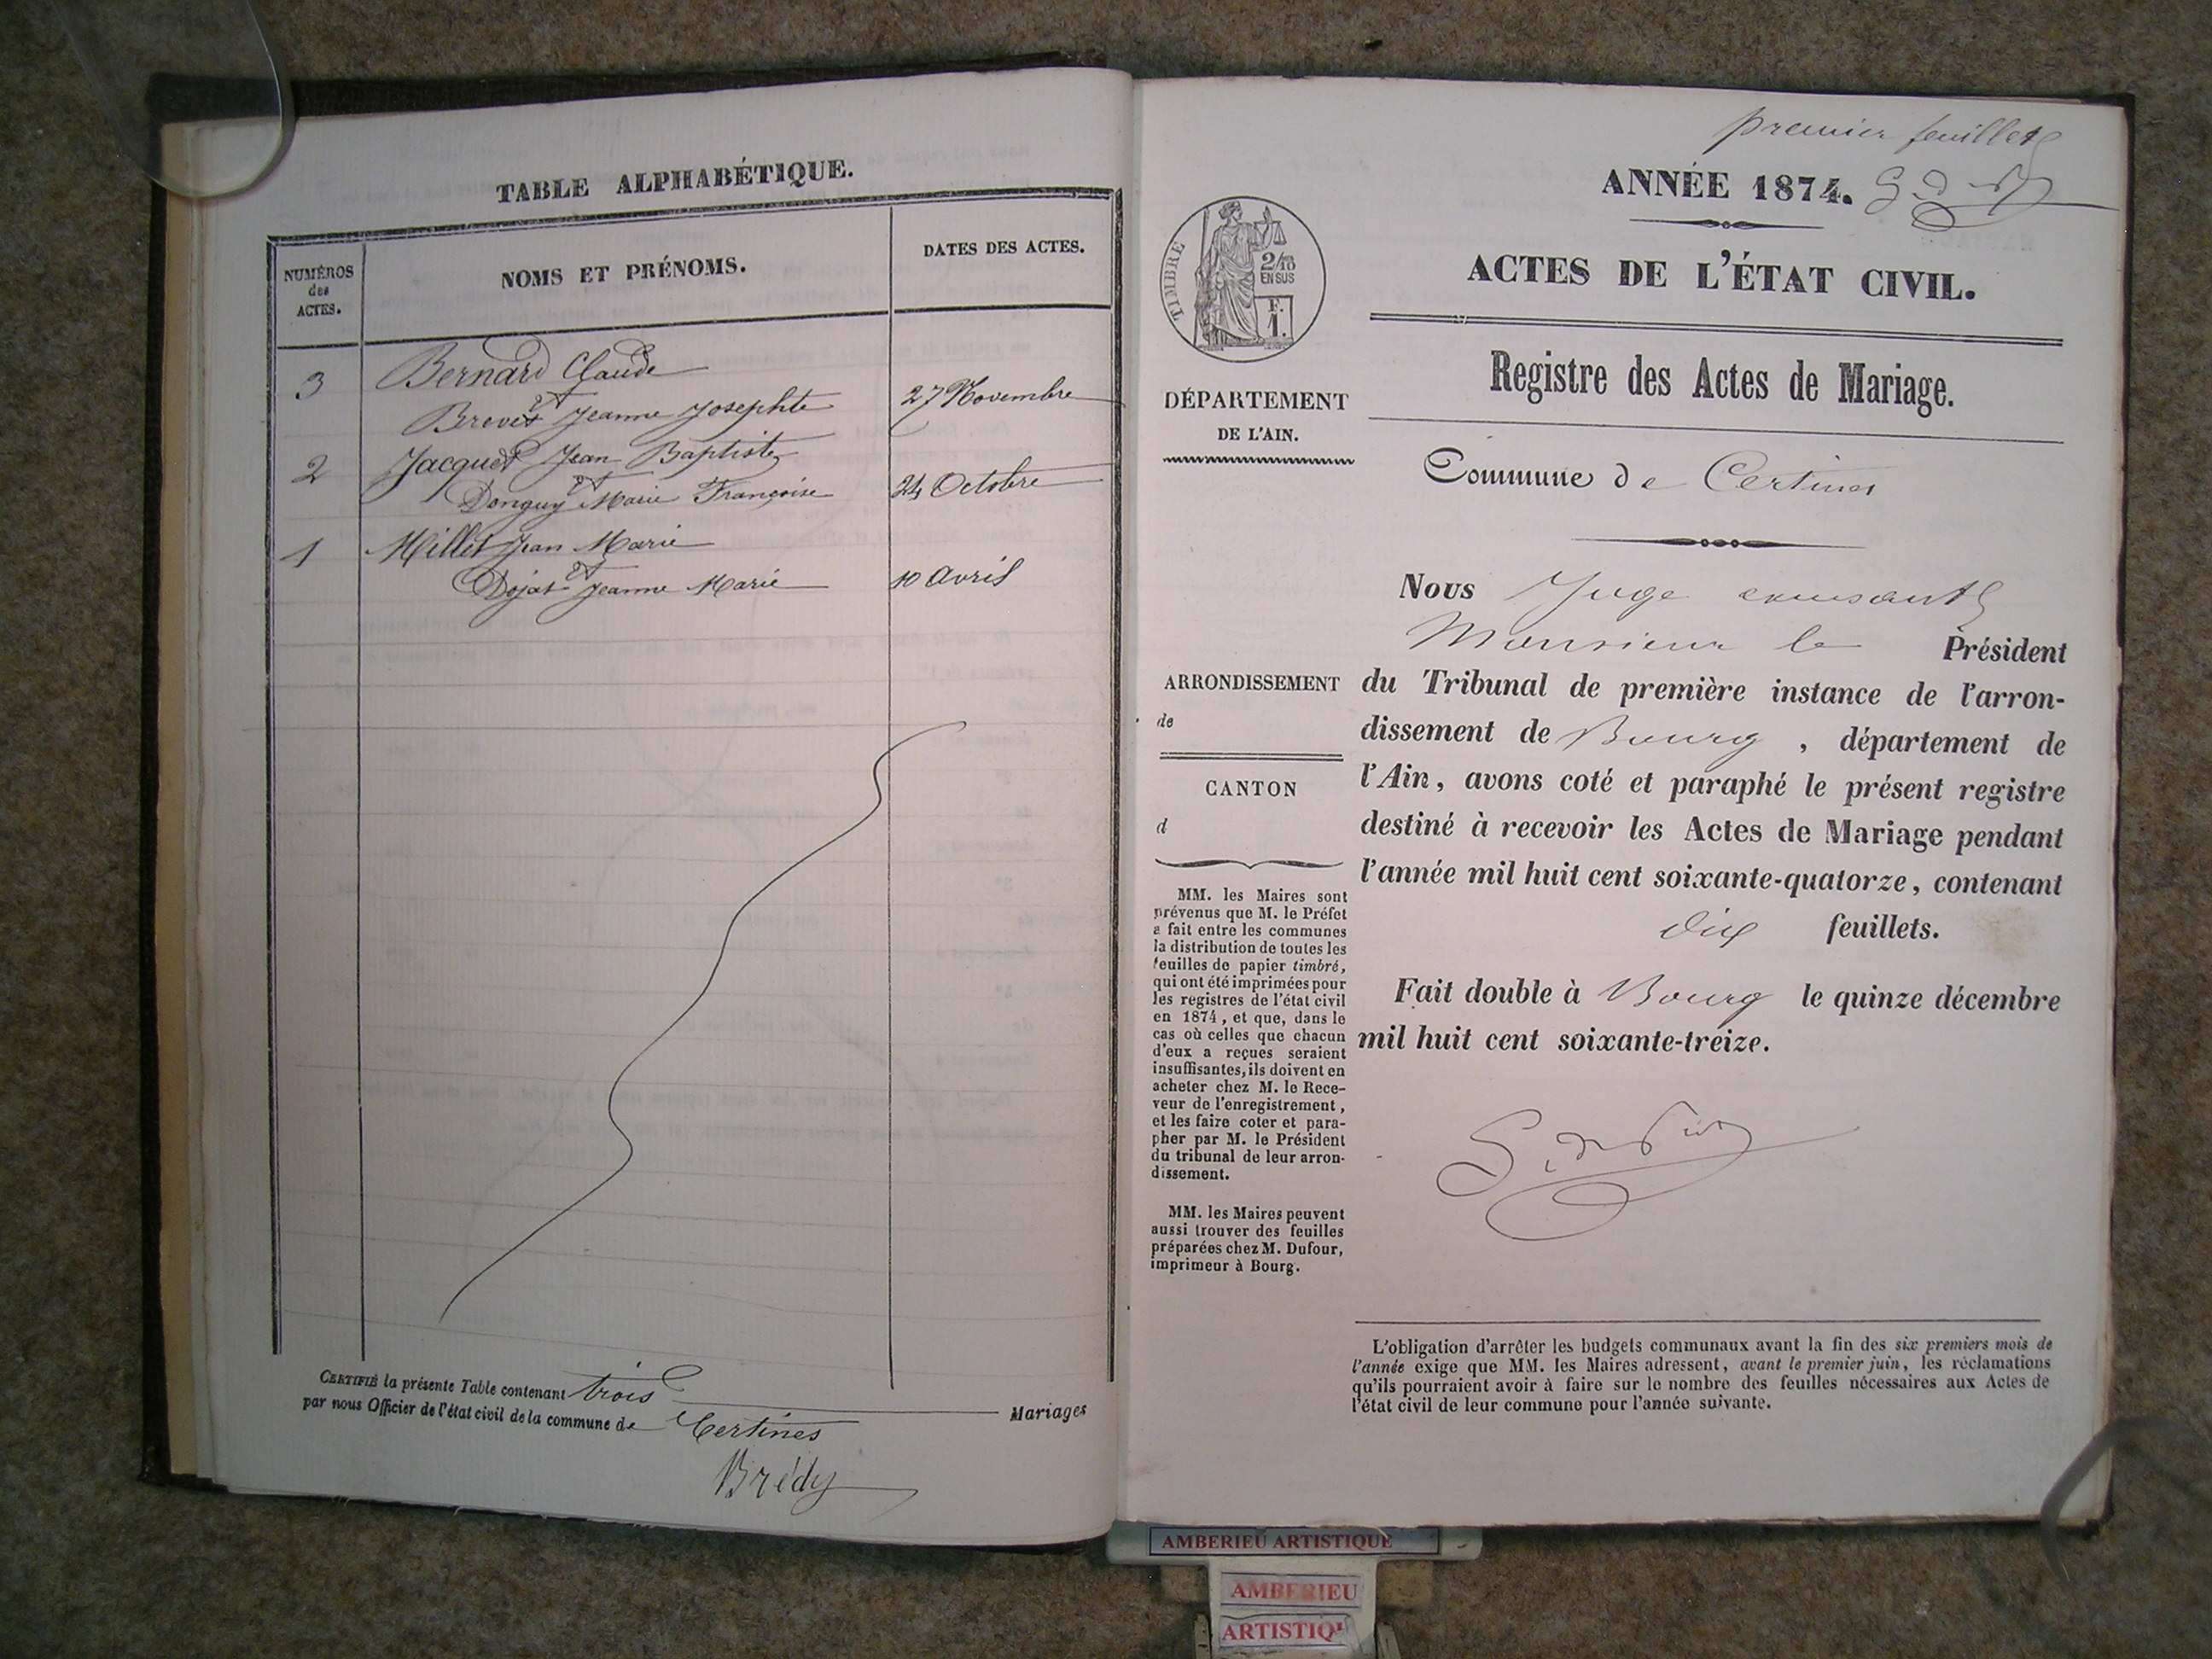 TABLE ALPHABÉTIQUE.
NUMÉROS
des
ACTES.
NOMS ET PRÉNOMS.
DATES DES ACTES.
3 Bernard Claude
et
Brevet Jeanne Josephte 27 Novembre
2 Jacquet Jean Baptiste
et
Donguy Marie Françoise 24 Octobre
1 Millet Jean Marie
et
Dojat Jeanne Marie 10 Avril
CERTIFIÉ la présente Table contenant trois Mariages
par nous Officier de l'état civil de la commune de Certines
Brédy
premier feuillet
ANNÉE 1874.
TIMBRE
2/10
EN SUS
F.
1.
ACTES DE L'ÉTAT CIVIL.
Registre des Actes de Mariage.
DÉPARTEMENT
DE L'AIN.
Commune de Certines
ARRONDISSEMENT
de
CANTON
d
MM. les Maires sont
prévenus que M. le Préfet
a fait entre les communes
la distribution de toutes les
feuilles de papier timbré,
qui ont été imprimées pour
les registres de l'état civil
en 1874, et que, dans le
cas où celles que chacun
d'eux a reçues seraient
insuffisantes, ils doivent en
acheter chez M. le Rece-
veur de l'enregistrement,
et les faire coter et para-
pher par M. le Président
du tribunal de leur arron-
dissement.
MM. les Maires peuvent
aussi trouver des feuilles
préparées chez M. Dufour,
imprimeur à Bourg.
Nous Juge
Monsieur le Président
du Tribunal de première instance de l'arron-
dissement de Bourg, département de
l'Ain, avons coté et paraphé le présent registre
destiné à recevoir les Actes de Mariage pendant
l'année mil huit cent soixante-quatorze, contenant
dix feuillets.
Fait double à Bourg le quinze décembre
mil huit cent soixante-treize.
L'obligation d'arrêter les budgets communaux avant la fin des six premiers mois de
l'année exige que MM. les Maires adressent, avant le premier juin, les réclamations
qu'ils pourraient avoir à faire sur le nombre des feuilles nécessaires aux Actes de
l'état civil de leur commune pour l'année suivante.
AMBERIEU ARTISTIQUE
AMBERIEU
ARTISTIQU